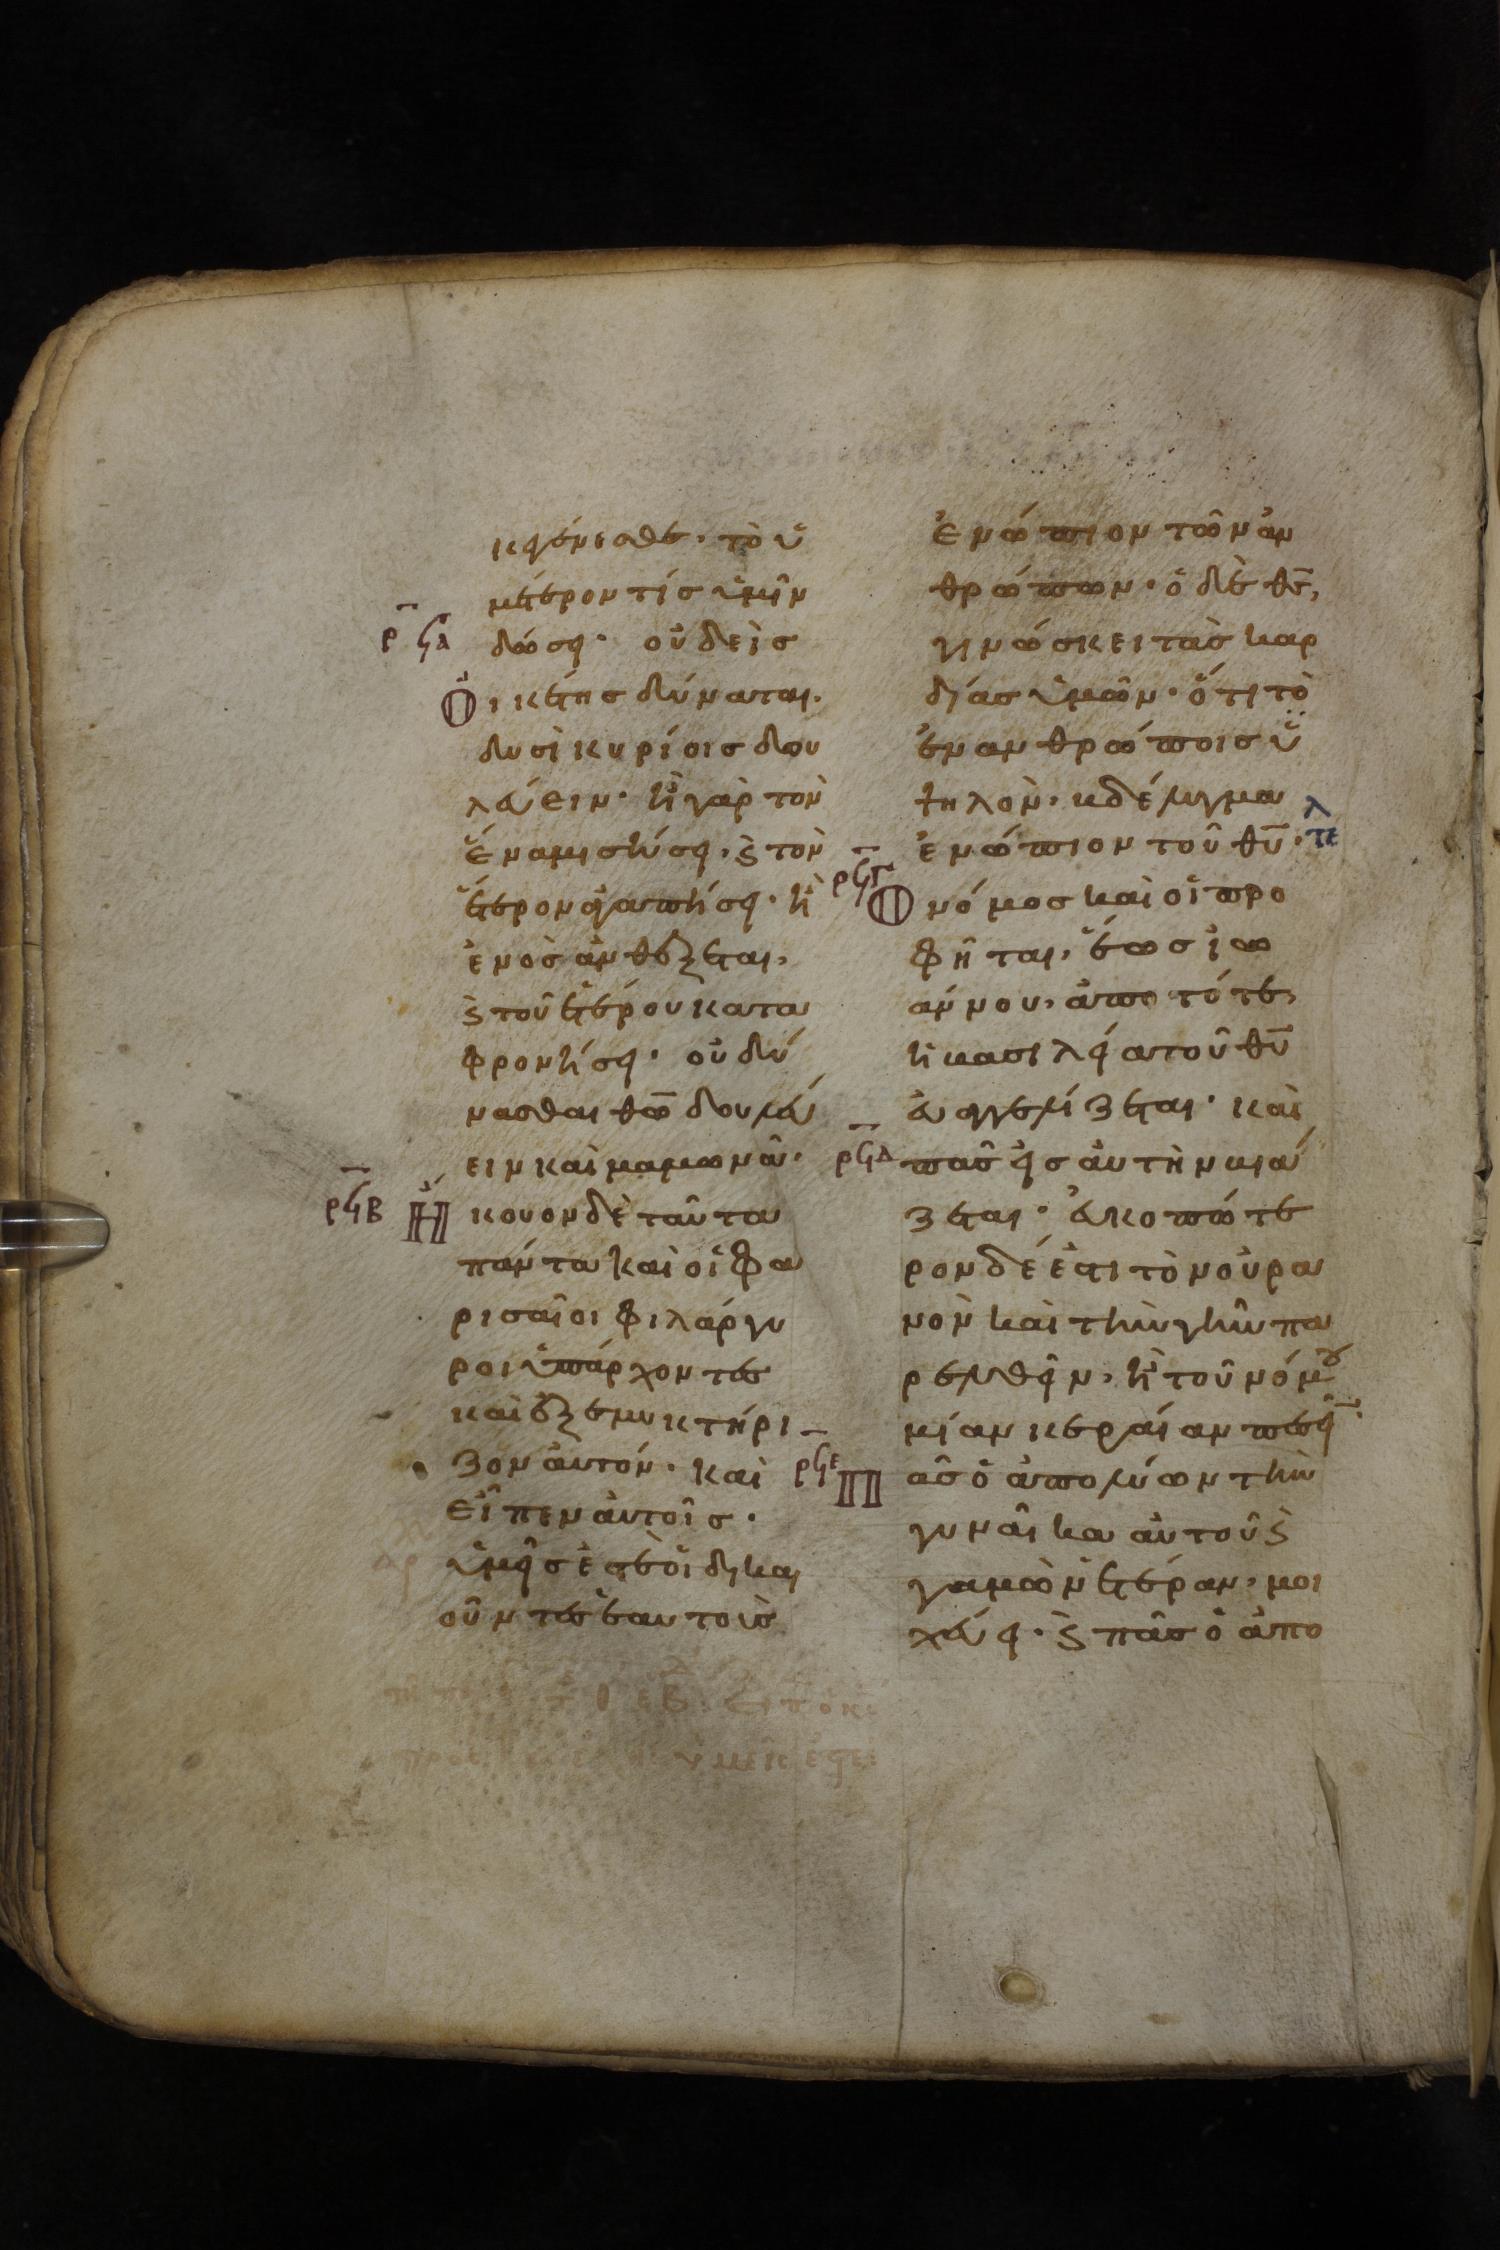 κρ ἐγένεσθε· τὸ ὑ
μέτερον τίς ὑμῖν
ρϟα
δώσει· οὐδεὶς
Οἰκέτης δύναται
δυσὶ κυρίοις δου
λεύειν· ἢ γὰρ τὸν
ἕνα μισήσει, ϗ τὸν
ἕτερον ἀγαπήσει· ἢ
ἑνὸς ἀνθέξεται,
ϗ τοῦ ἑτέρου κατα
φρονήσει· οὐ δύ
νασθαι θω̅ δουλεύ
ειν καὶ μαμωνᾶ·
ρϟβ
Ἤκουον δὲ ταῦτα
πάντα καὶ οἱ Φα
ρισαῖοι φιλάργυ
ροι ὑπάρχοντες
καὶ ἐξεμυκτήρι
ζον αὐτόν· καὶ
εἶπεν αὐτοῖς·
ὑμεῖς ἐστὲ οἱ δικαι
οῦντες ἑαυτοὺς
ἐνώπιον τῶν ἀν
θρώπων· ὁ δὲ θς̅,
γινώσκει τὰς καρ
δίας ὑμῶν· ὅτι τὸ
ἐν ἀνθρώποις ὑ
ψηλὸν, βδέλυγμα
ἐνώπιον τοῦ θυ̅·
τελ
ρϟγ
Ὁ νόμος καὶ οἱ προ
φῆται, ἕως ἰω
άννου, ἀπὸ τότε,
ἡ βασιλεία τοῦ θυ̅
εὐαγγελίζεται· καὶ
ρϟδ
πᾶς εἰς αὐτὴν βιά
ζεται· εὐκοπώτε
ρον δέ ἐστι τὸν οὐρα
νὸν καὶ τὴν γὴν πα
ρελθεῖν, ἢ τοῦ νόμου
μίαν κεραίαν πεσεῖν·
ρϟε
Πᾶς ὁ ἀπολύων τὴν
γυναῖκα αὐτοῦ ϗ
γαμῶν ἑτέραν, μοι
χεύει· ϗ πᾶς ὁ ἀπο